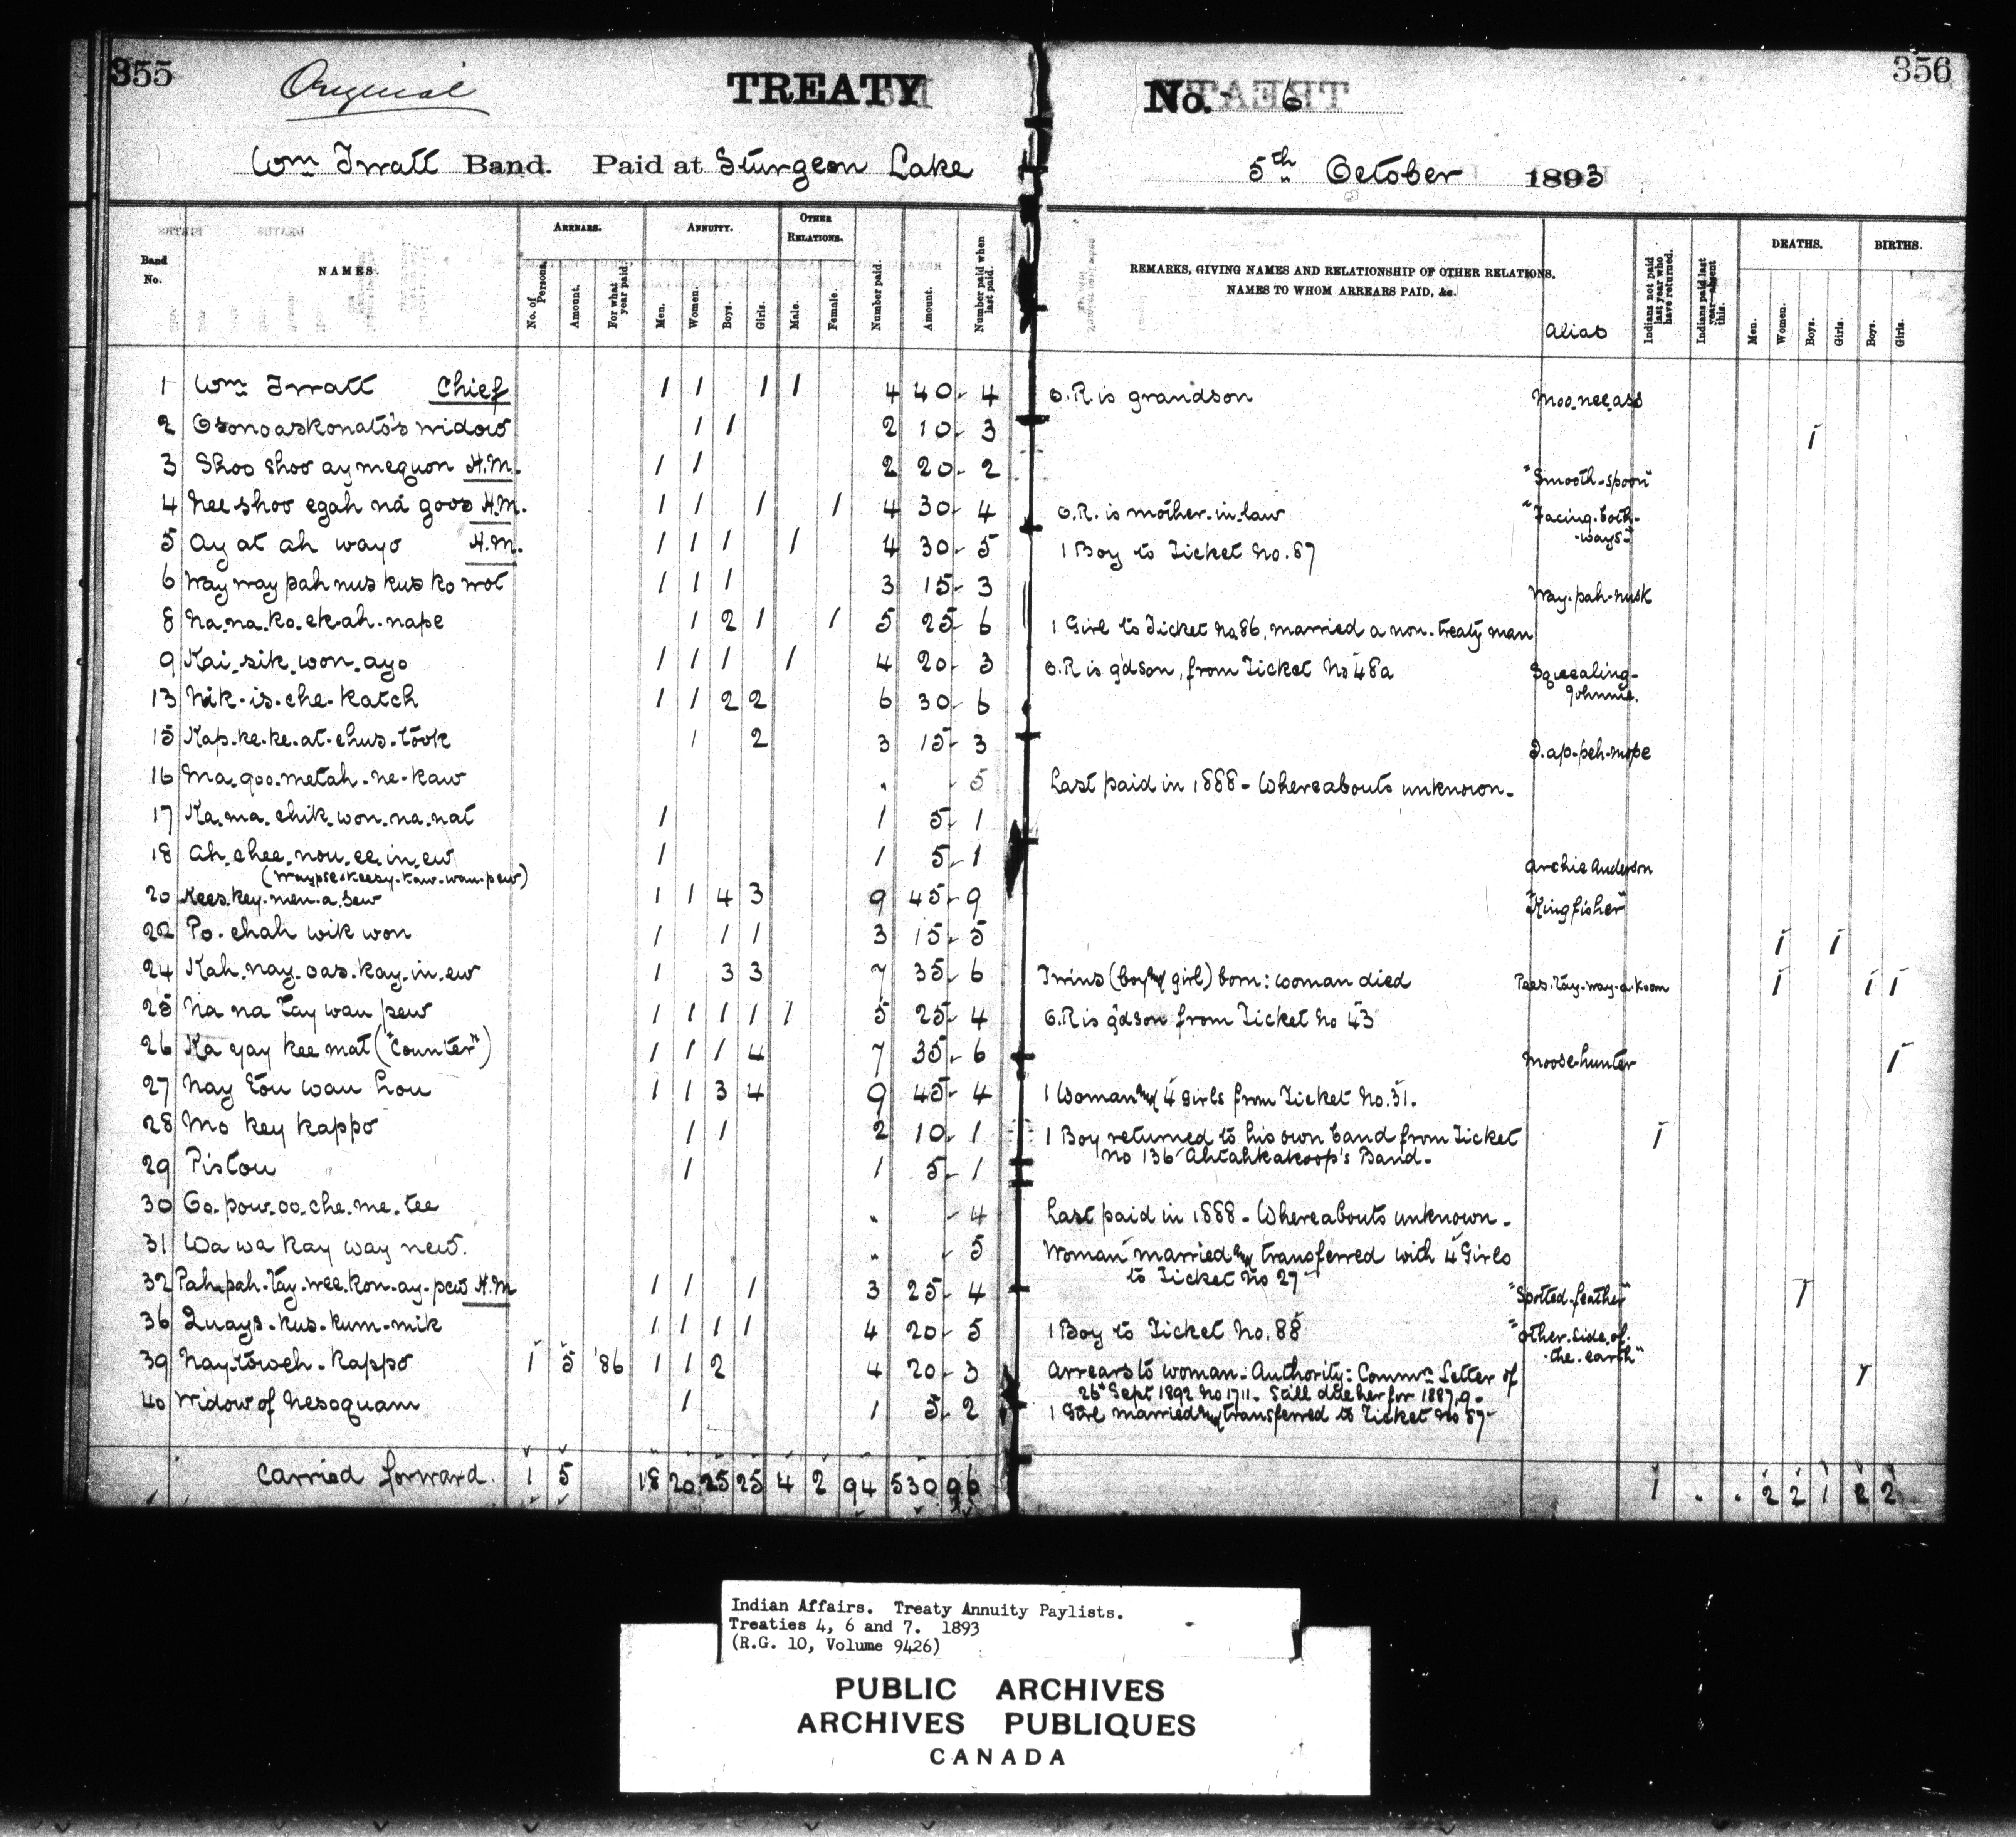 355
Original
TREATY
No. 6
356
Wm Twatt Band. Paid at Sturgeon Lake
5th October 1893
Band No.
NAMES.
ARREARS.
No. of Persons.
Amount.
For what year paid.
ANNUITY.
Men.
Women.
Boys.
Girls.
OTHER RELATIONS.
Male.
Female.
Number paid.
Amount.
Number paid when last paid.
REMARKS, GIVING NAMES AND RELATIONSHIP OF OTHER RELATIONS.
NAMES TO WHOM ARREARS PAID, &c.
alias
Indians not paid last year who have returned.
Indians paid last year absent this.
DEATHS.
Men.
Women.
Boys.
Girls.
BIRTHS.
Boys.
Girls.
1 Wm Twatt Chief 1 1 1 1 4 40- 4 O.R is grandson Moo.nee.ass
2 Osonoaskonato's widow 1 1 2 10- 3 1
3 Shoo shoo aymequon H.M. 1 1 2 20- 2 "Smooth-spoon"
4 Nee shoo egah ná goos H.M. 1 1 1 1 4 30- 4 O.R. is mother-in-law "Facing-both-ways"
5 Ay at ah wayo H.M. 1 1 1 1 4 30- 5 1 Boy to Ticket No. 87
6 Way way pah nus kus ko wot 1 1 1 3 15- 3 Way-pah-nusk
8 Na.na.ko.ek-ah-nape 1 2 1 1 5 25- 6 1 Girl to Ticket No 86, married a non-treaty man
9 Kai.sik.won.ayo 1 1 1 1 4 20- 3 O.R is g'dson, from Ticket No 48a Squealing-Johnnie.
13 Nik-is-che-Katch 1 1 2 2 6 30- 6
15 Kap-ke-ke-at-chus-took 1 2 3 15- 3
16 Ma-goo-metah-ne-kaw " - 5 Last paid in 1888 - Whereabouts unknown-
17 Ka.ma.chik.won.na.nat 1 1 5- 1
18 Ah.chee.nou.ee.in.ew 1 1 5- 1 Archie Anderson
20 Kees.key.men.a.sew 1 1 4 3 9 45- 9 "Kingfisher"
22 Po-chah wik won 1 1 1 3 15- 5 1 1
24 Kah.nay.oas.kay.in.ew 1 3 3 7 35- 6 Twins (boy & girl) born: woman died 1 1 1
25 Na na tay wau pew 1 1 1 1 1 5 25- 4 O.R is g'dson from Ticket No 43
26 Ka yay kee mat ("Counter") 1 1 1 4 7 35- 6 Moose-hunter 1
27 Nay tou wau hou 1 1 3 4 9 45- 4 1 Woman & 4 girls from Ticket No. 31.
28 Mo key kappo 1 1 2 10- 1 1 Boy returned to his own band from Ticket
No 136 Ahtahkakoop's Band- 1
29 Pistou 1 1 5- 1
30 Oo-pow-oo-che-me-tee " - 4 Last paid in 1888 - Whereabouts unknown-
31 Wa wa kay way new. " - 5 Woman married & transferred with 4 Girls
to Ticket No 27
32 Pah-pah-tay-wee-kon-ay-pew H.M 1 1 1 3 25- 4 "Spotted-feather" 1
36 Quays-kus-kum-mik 1 1 1 1 4 20- 5 1 Boy to Ticket No. 88 "other-side-of-the-earth"
39 Nay-toweh-kappo 1 5 '86 1 1 2 4 20- 3 Arrears to woman - Authority: Commrs Letter of
26th Sept 1892 No 1711. Still due her for 1887-9- 1
40 Widow of Nesoquam 1 1 5- 2 1 Girl married & transferred to Ticket No 57
Carried forward. 1 5 18 20 25 25 4 2 94 530 96 1 . . 2 2 1 2 2
Indian Affairs. Treaty Annuity Paylists.
Treaties 4, 6 and 7. 1893
(R.G. 10, Volume 9426)
PUBLIC ARCHIVES
ARCHIVES PUBLIQUES
CANADA